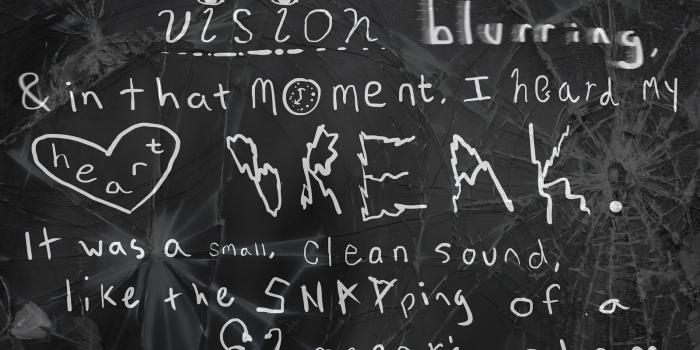 vision blurring,
& in that moment. I heard my
heart BREAK.
It was a small, clean sound,
like the SNAPping of a